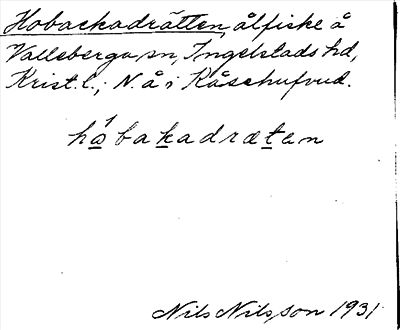 Hobackadrätten, ålfiske å
Valleberga sn, Ingelstads hd,
Krist. l.; N. å i Kåsehufvud.
håbakadrætan
Nils Nilsson 1931